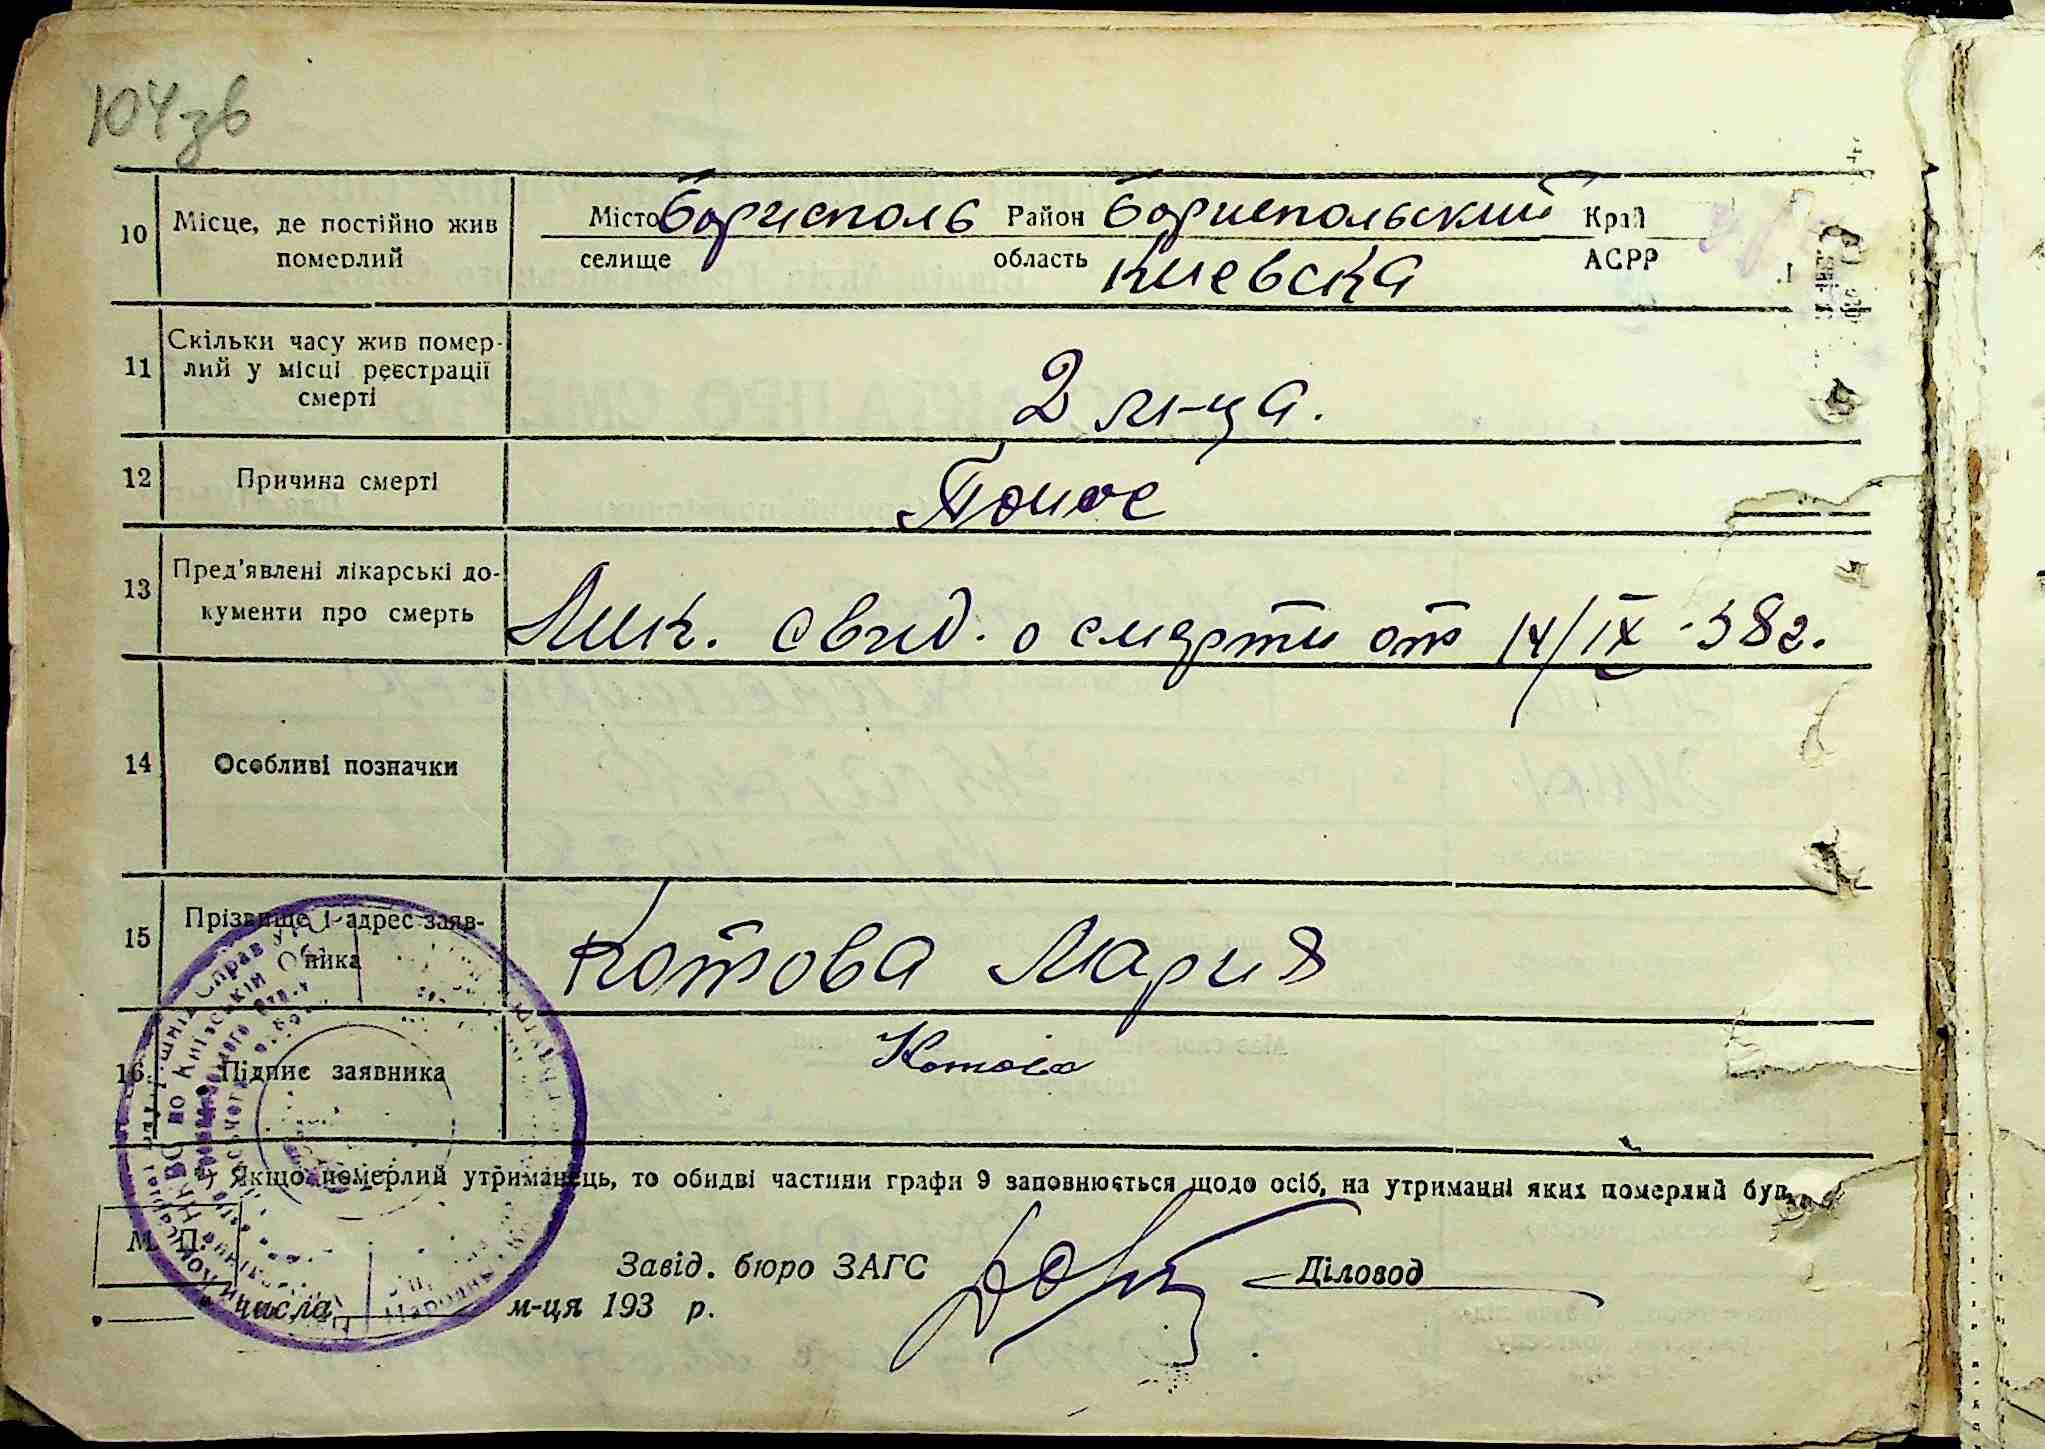 104зв
10 Місце, де постійно жив померлий
Місто Борисполь Район Бориспольский Край
селище область Киевска АСРР
11 Скільки часу жив помер-
лий у місці реєстрації
смерті
2 м-ца.
12 Причина смерті Понос
13 Пред'явлені лікарські до-
кументи про смерть
Лик. свид. о смерти от 14/IX-38г.
14 Особливі позначки
15 Прізвище і адрес заяв-
ника
Котова Мария
16 Підпис заявника Котова
*) Якщо померлий утриманець, то обидві частини графи 9 заповнюється щодо осіб, на утриманні яких померлий був.
М. П.
Завід. бюро ЗАГС Діловод
числа м-ця 193 р.